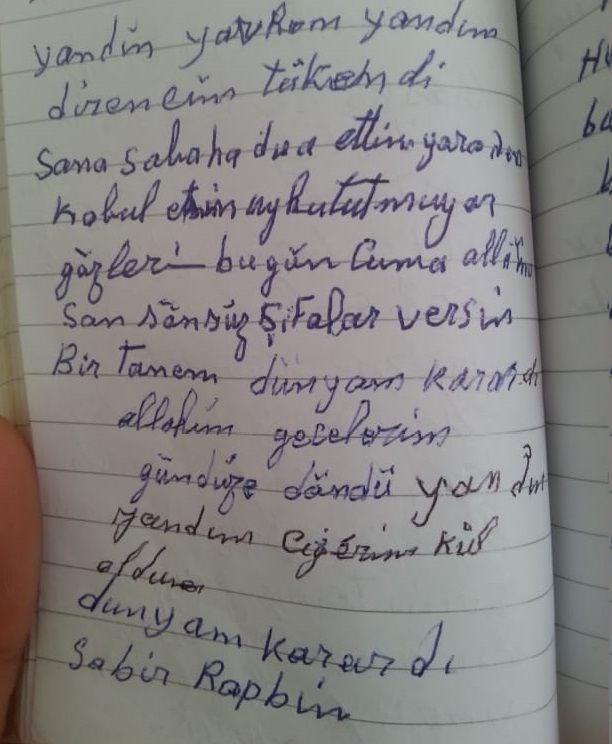 yandin yavrom yandım
direncim tükendi
Sana sabaha dua ettim yaradan
kabul etsin uyku tutmuyor
gözleri bugün Cuma allahım
san sansüz şifalar versin
Bir Tanem dünyam karardı
allahım gecelerim
gündüze döndü yandım
yandım ciğerim kül
oldu
dunyam karardı
Sabir Rapbim